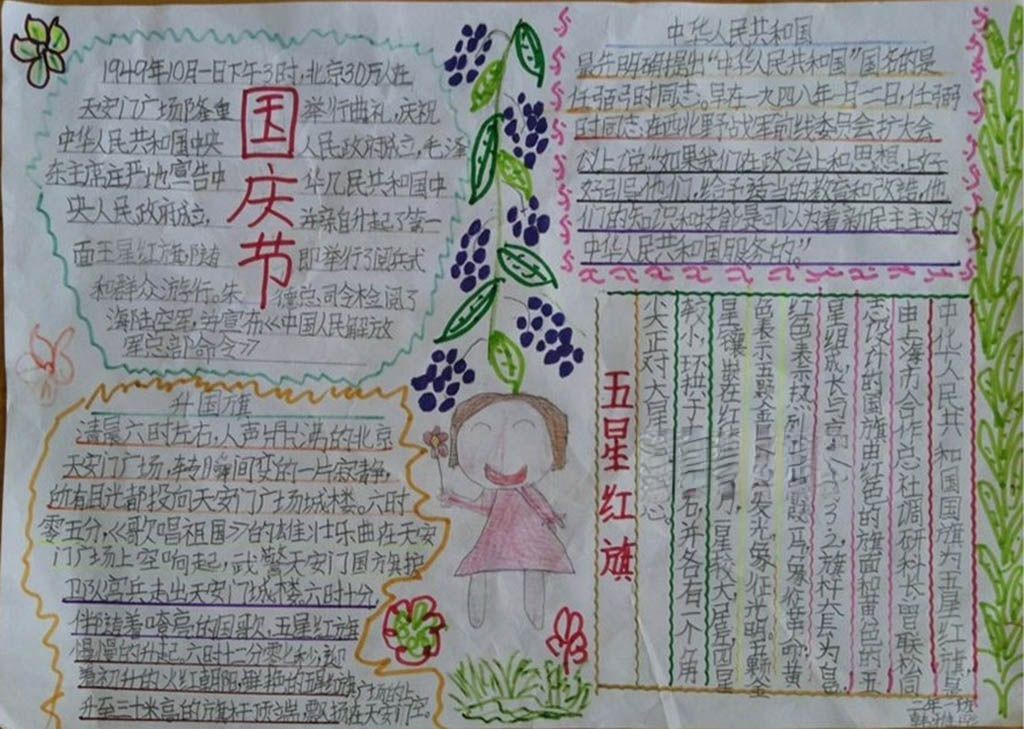 国庆节
1949年10月一日下午3时,北京30万人在
天安门广场隆重 举行曲礼,庆祝
中华人民共和国中央 人民政府成立,毛泽
东主席庄严地宣告中 华人民共和国中
央人民政府成立, 并亲自升起了第一
面王星红旗,随 即举行了阅兵式
和群众游行。朱 德总司令检阅了
海陆空军,并宣布《中国人民解放
军总部命令》
升国旗
清晨六时左右,人声鼎沸的北京
天安门广场,转瞬间变的一片寂静,
所有目光都投向天安门广场城楼。六时
零五分,《歌唱祖国》的雄壮乐曲在天安
门广场上空响起,武警天安门国旗护
卫队官兵走出天安门城楼。六时十分,
伴随着嘹亮的国歌,五星红旗
慢慢的升起。六时十二分零 秒,
着初升的火红朝阳,
升至三十米高的旗杆顶端,飘扬在天安门
中华人民共和国
最先明确提出“中华人民共和国”国务的是
任弼时同志。早在一九四八年一月十二日,任弼
时同志在西北野战军前线委员会扩大会
议上说“如果我们在政治上和思想上好
好引导他们,给予适当的教育和改造,他
们的知识和技能是可以为着新民主主义的
中华人民共和国服务的”
五星红旗
中华人民共和国国旗为五星红旗,是
由上海市合作总社调研科长曾联松同
志设计的国旗由红色的旗面和黄色的五
星组成,长与高 3:2,旗杆套为白
红色表示热烈 象征革命,黄
色表示五颗金星 发光象征光明。五颗金
星镶 在红旗 一星较大居 四星
较小环拱于 右,并各有一个角
尖正对大星 心。
二年一班
韩